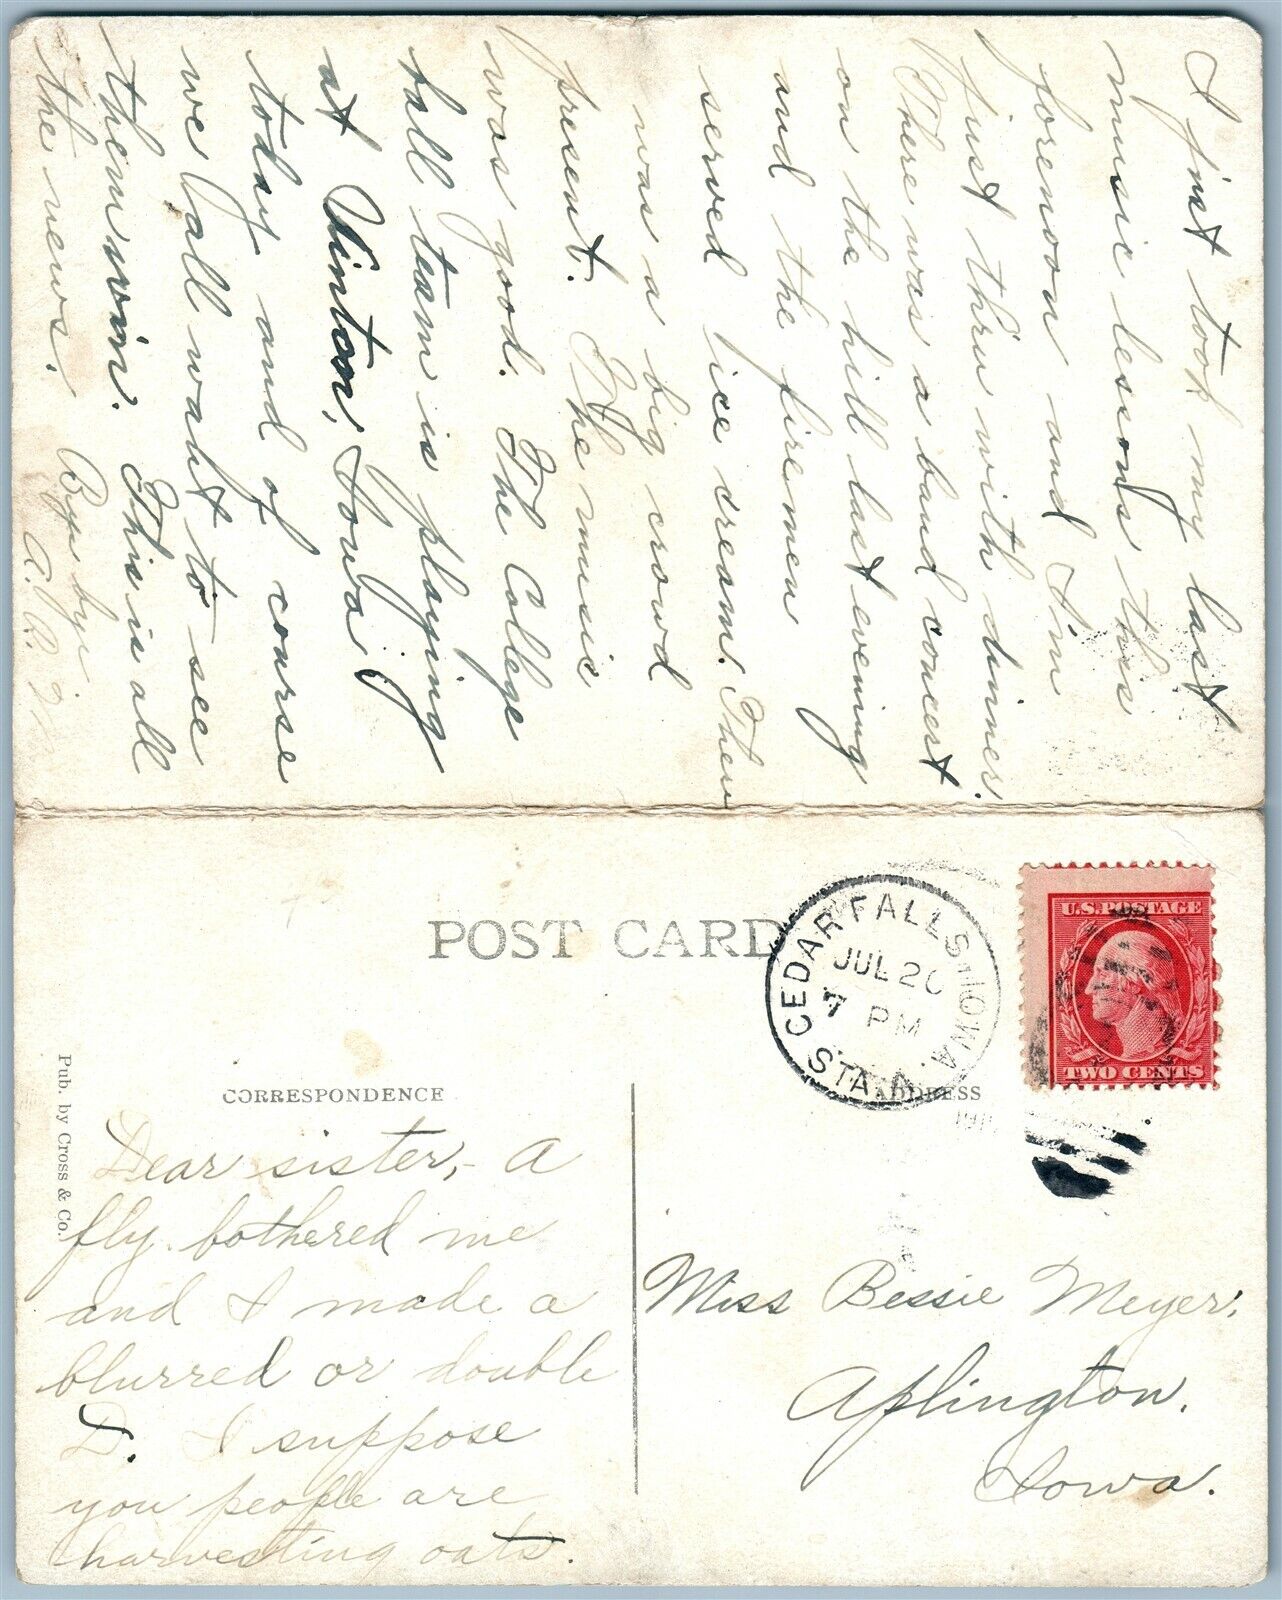 POST CARD
CEDAR FALLS, IOWA
JUL 20
7 PM
STA. A.
U.S. POSTAGE
TWO CENTS
CORRESPONDENCE
ADDRESS
Pub. by Cross & Co.
Dear sister,- A
fly bothered me
and I made a
blurred or double
D. I suppose
you people are
harvesting oats.
Miss Bessie Meyer,
Aplington,
Iowa.
I just took my last
music lesons this
forenoon and I'm
just thru with dinner.
There was a band concert
on the hill last evening
and the firemen
served ice cream. There
was a big crowd
present. The music
was good. The College
ball team is playing
at Vinton, Iowa
today and of course
we all want to see
them win. This is all
the news. Bye bye
A. R. M.